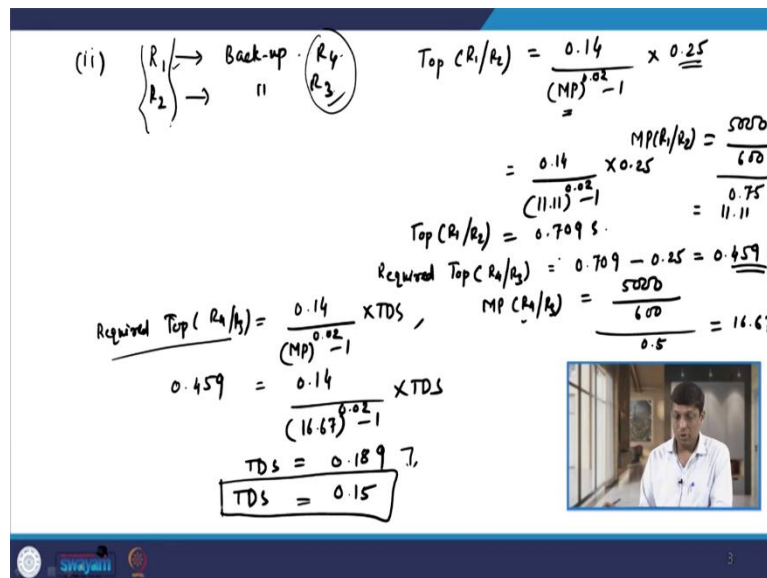 (ii) { R₁ → Back-up . R₄
R₂ → " R₃
Top (R₁/R₂) = 0.14 / ((MP)^0.02 - 1) × 0.25
MP(R₁/R₂) = 5000/600 / 0.75
= 11.11
= 0.14 / ((11.11)^0.02 - 1) × 0.25
Top (R₁/R₂) = 0.709 s.
Required Top (R₄/R₃) = 0.709 - 0.25 = 0.459
MP (R₄/R₃) = 5000/600 / 0.5 = 16.67
Required Top (R₄/R₃) = 0.14 / ((MP)^0.02 - 1) × TDS ,
0.459 = 0.14 / ((16.67)^0.02 - 1) × TDS
TDS = 0.189
TDS = 0.15
swayam
3